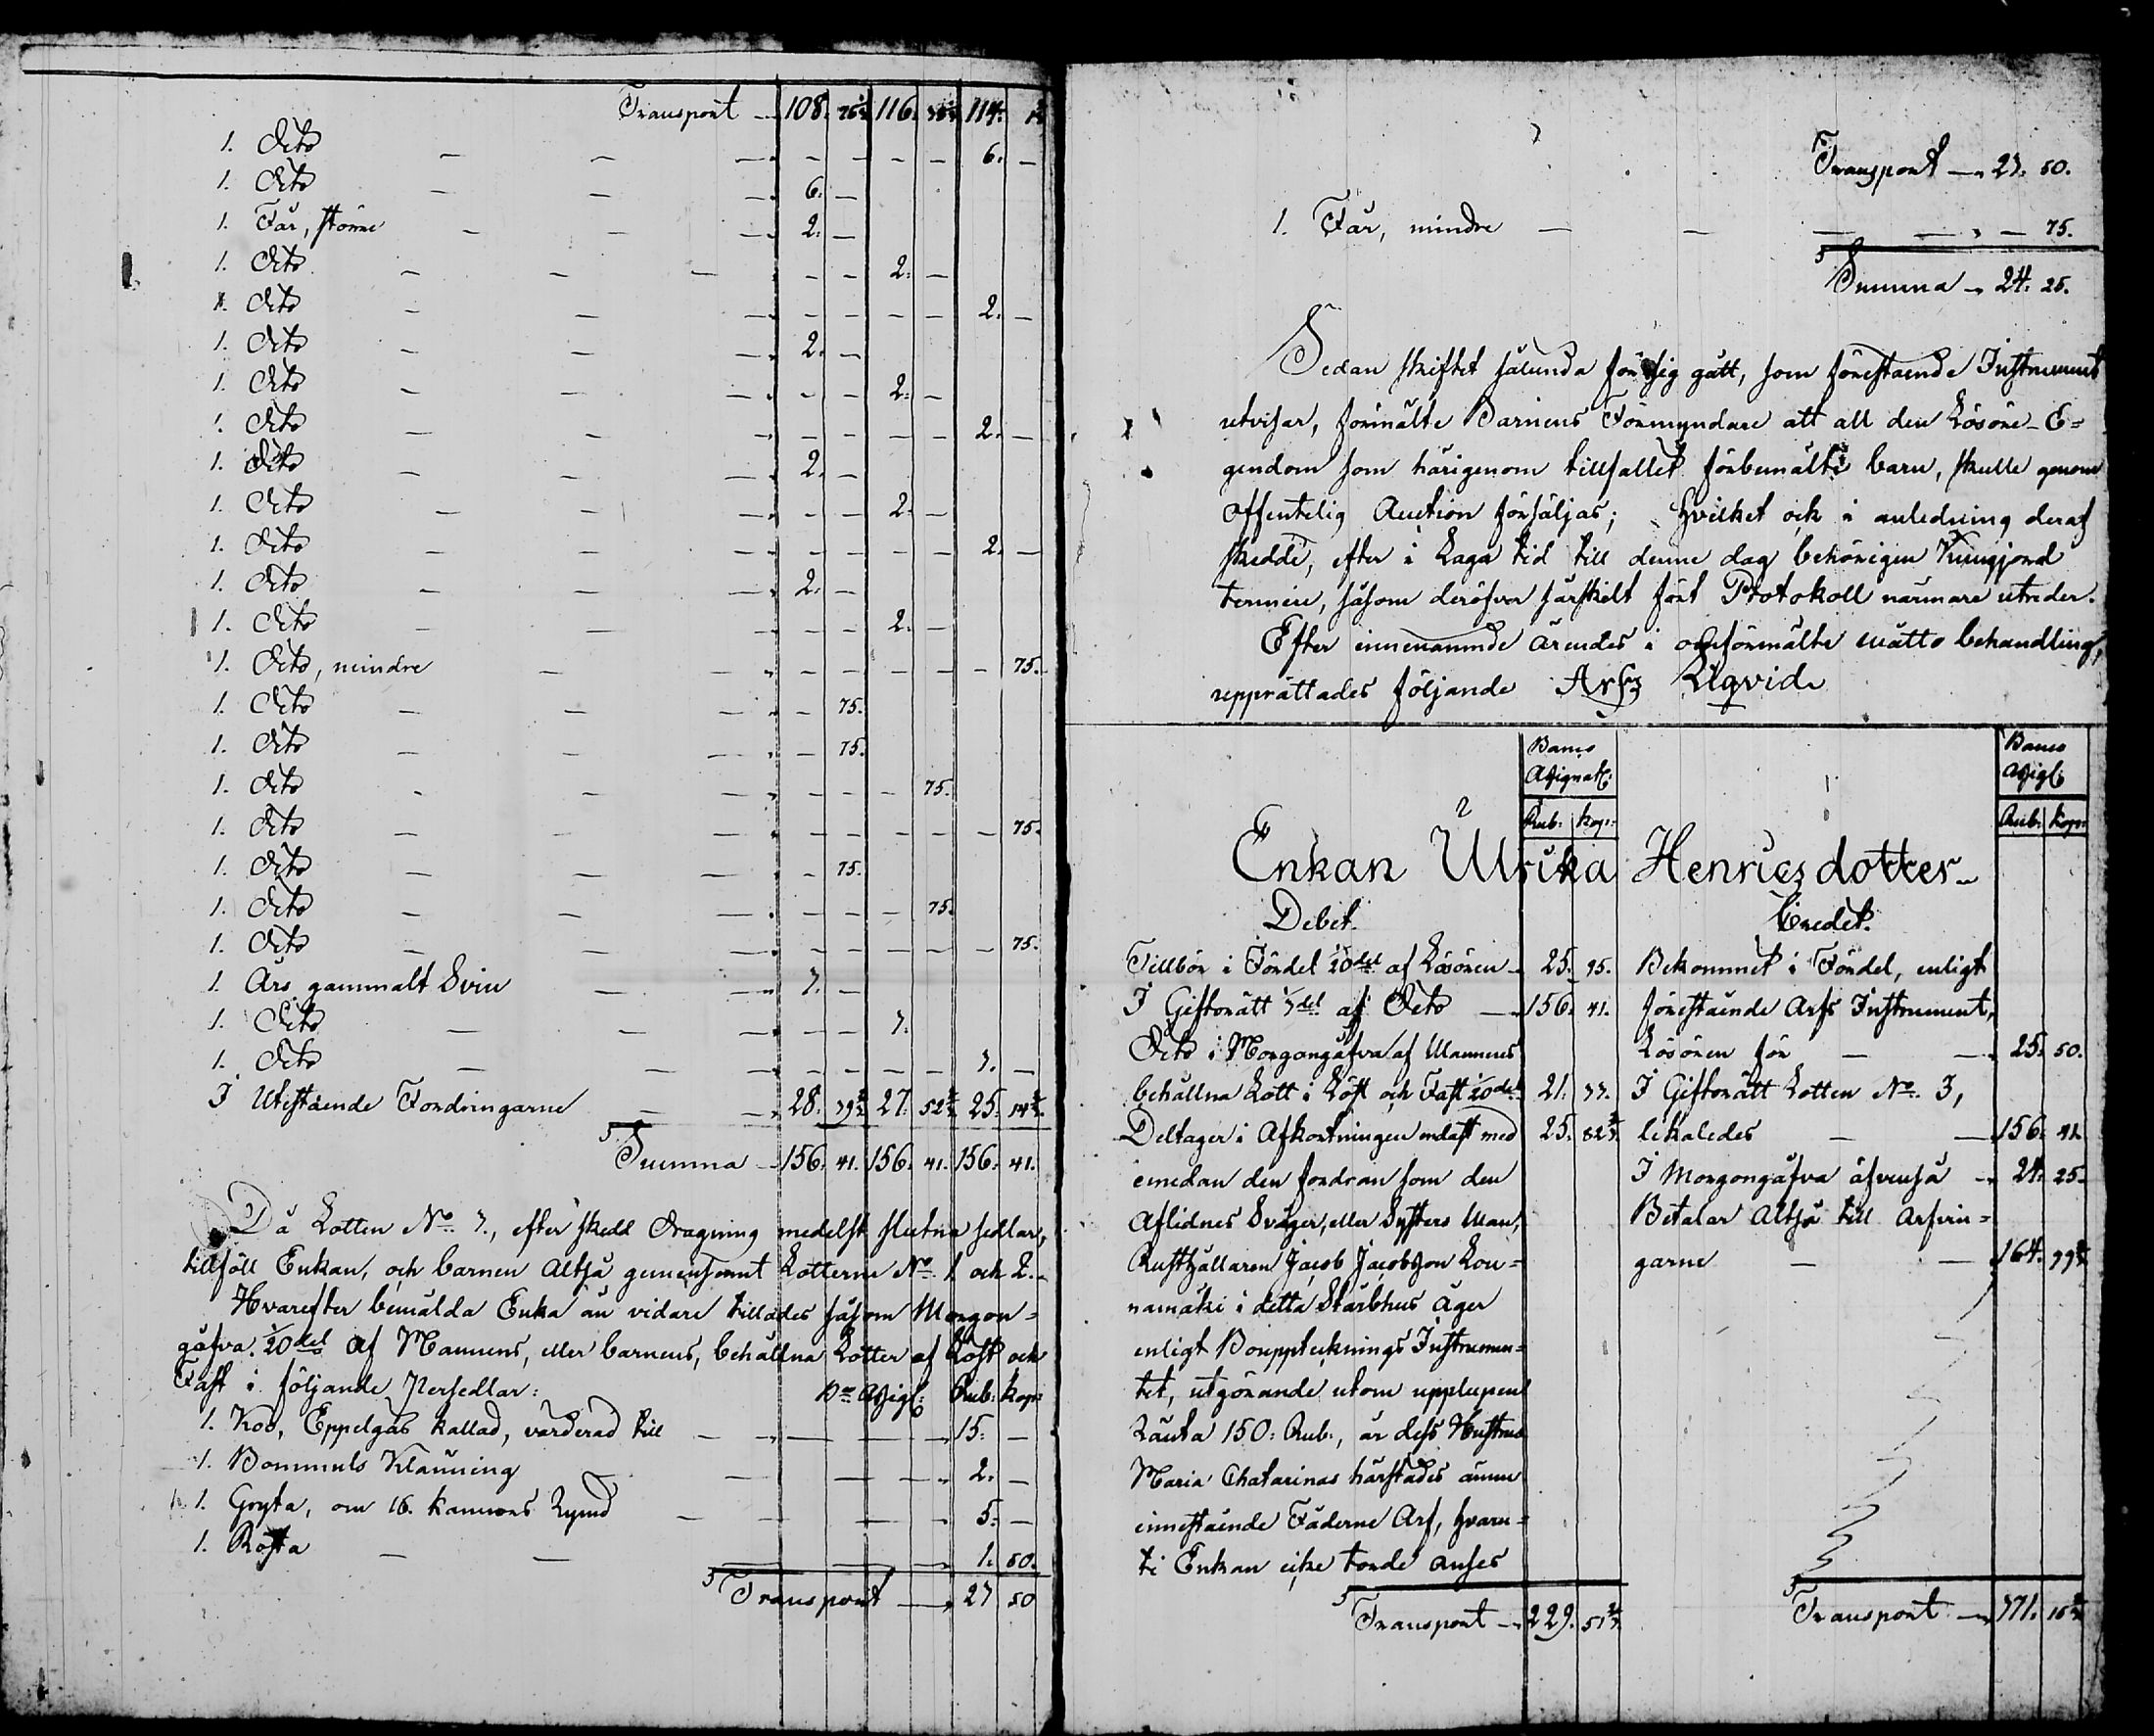 Transport — 108. 116. 114.
1. Dito — — — — — — — 6. —
1. Dito — — — 6. —
1. Får, större — — — 2. —
1. Dito — — — — — 2. —
1. Dito — — — — — — — 2. —
1. Dito — — — 2. —
1. Dito — — — — — 2. —
1. Dito — — — — — — — 2. —
1. Dito — — — 2. —
1. Dito — — — — — 2. —
1. Dito — — — — — — — 2. —
1. Dito — — — 2. —
1. Dito — — — — — 2. —
1. Dito, mindre — — — — — — — 75.
1. Dito — — — — 75.
1. Dito — — — — 75.
1. Dito — — — — — 75.
1. Dito — — — — — — — — 75.
1. Dito — — — — 75.
1. Dito — — — — — — 75.
1. Dito — — — — — — — — 75.
1. Års gammalt Svin — — 3. —
1. Dito — — — — — 3.
1. Dito — — — — — — — 3. —
I Utestående Fordringarne — — 28. 27. 25.
Summa — 156. 41. 156. 41. 156. 41.
Då Lotten No. 3., efter skedd dragning medelst slutna sedlar,
tillföll Enkan, och barnen Altså gemensamt Lotterne No. 1 och 2. —
Hvarefter bemälda Enka än vidare tillades såsom Morgon=
gåfva 1/20del af Mannens, eller barnens, behållna Lotter af Löst och
Fast i följande Persedlar: Bco Assign: Rub: Kop:
1. Koo, Eppelgås kallad, värderad till — — — — 15. —
1. Bommuls Klänning — — — 2. —
1. Gryta, om 16. kannors Rymd — — — 5. —
1. Rosta — — — — 1. 50.
Transport — 23 50
Transport — 23. 50.
1. Får, mindre — — — — — 75.
Summa — 24. 25.
Sedan skiftet sålunda för sig gått, som förestående Instrument
utvisar, förmälte Barnens Förmyndare att all den Lösöre-E=
gendom som härigenom tillfallet förbemälte barn, skulle genom
Offentelig Auction försäljas; hvilket och i anledning deraf
skedde, efter i Laga tid till denne dag behörigen Kungjord
termin, såsom deröfver särskilt fört Protokoll närmare utreder.
Efter innenämnde ärendes i ofvanförmälte måtto behandling,
upprättades följande Arfs Liqvid.
Banco
Assignat:
Rub: Kop:
Banco
Assig:
Rub: Kop:
Enkan Ulrika Henricsdotter
Debet. Credet.
Tillbör i Fördel 1/20del af Lösören — 25. 95. Bekommet i Fördel, enligt
I Giftorätt 1/3del af Dito — 156. 41. förestående Arfs Instrument,
Dito i Morgongåfva af Mannens Lösören för — — 25. 50.
behållna Lott i Löst och Fast 1/20del 21. 33. I Giftorätt Lotten No. 3,
Deltager i Afkortningen endast med 25. 82 likaledes — — 156. 41.
emedan den fordran som den I Morgongåfva äfvenså — 24. 25.
Aflidnes Svåger, eller Systers Man, Betalar Altså till Arfvin=
Rusthållaren Jacob Jacobsson Lou= garne — — 164. 99
namäki i detta Stärbhus äger
enligt Bouppteknings Instrumen=
tet, utgörande utom upplupen
Ränta 150: Rub:, är dess Hustrus
Maria Chatarinas härstädes ännu
innestående Fäderne Arf, hvaru=
ti Enkan icke torde anses
Transport — 229. 51 Transport — 371. 15